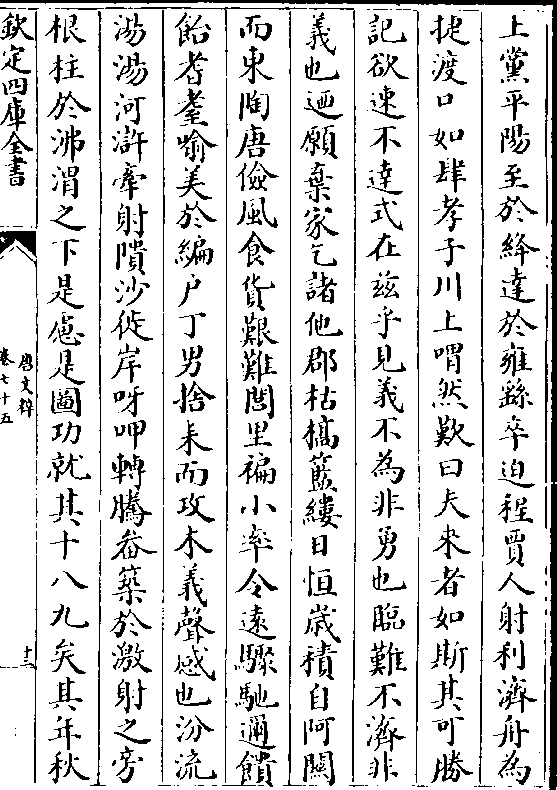 上黨平陽至於絳達於雍繇卒迫程賈人射利濟舟為
捷渡口如肆孝子川上喟然歎曰夫來者如斯其可勝
記欲速不達式在兹乎見義不為非勇也臨難不濟非
義也迺願棄家乞諸他郡枯槁籃縷日恒歲積自河闗
而東陶唐儉風食貨艱難閭里褊小率令遠驟馳邇饋
飴耆耋喻美於編户丁男捨耒而攻木義聲感也汾流
湯湯河滸牽射隤沙徙岸呀呷轉騰畚築於激射之旁
根柱於沸渭之下是慮是圖功就其十八九矣其年秋
欽定四庫全書
唐文粹
卷七十五
十三